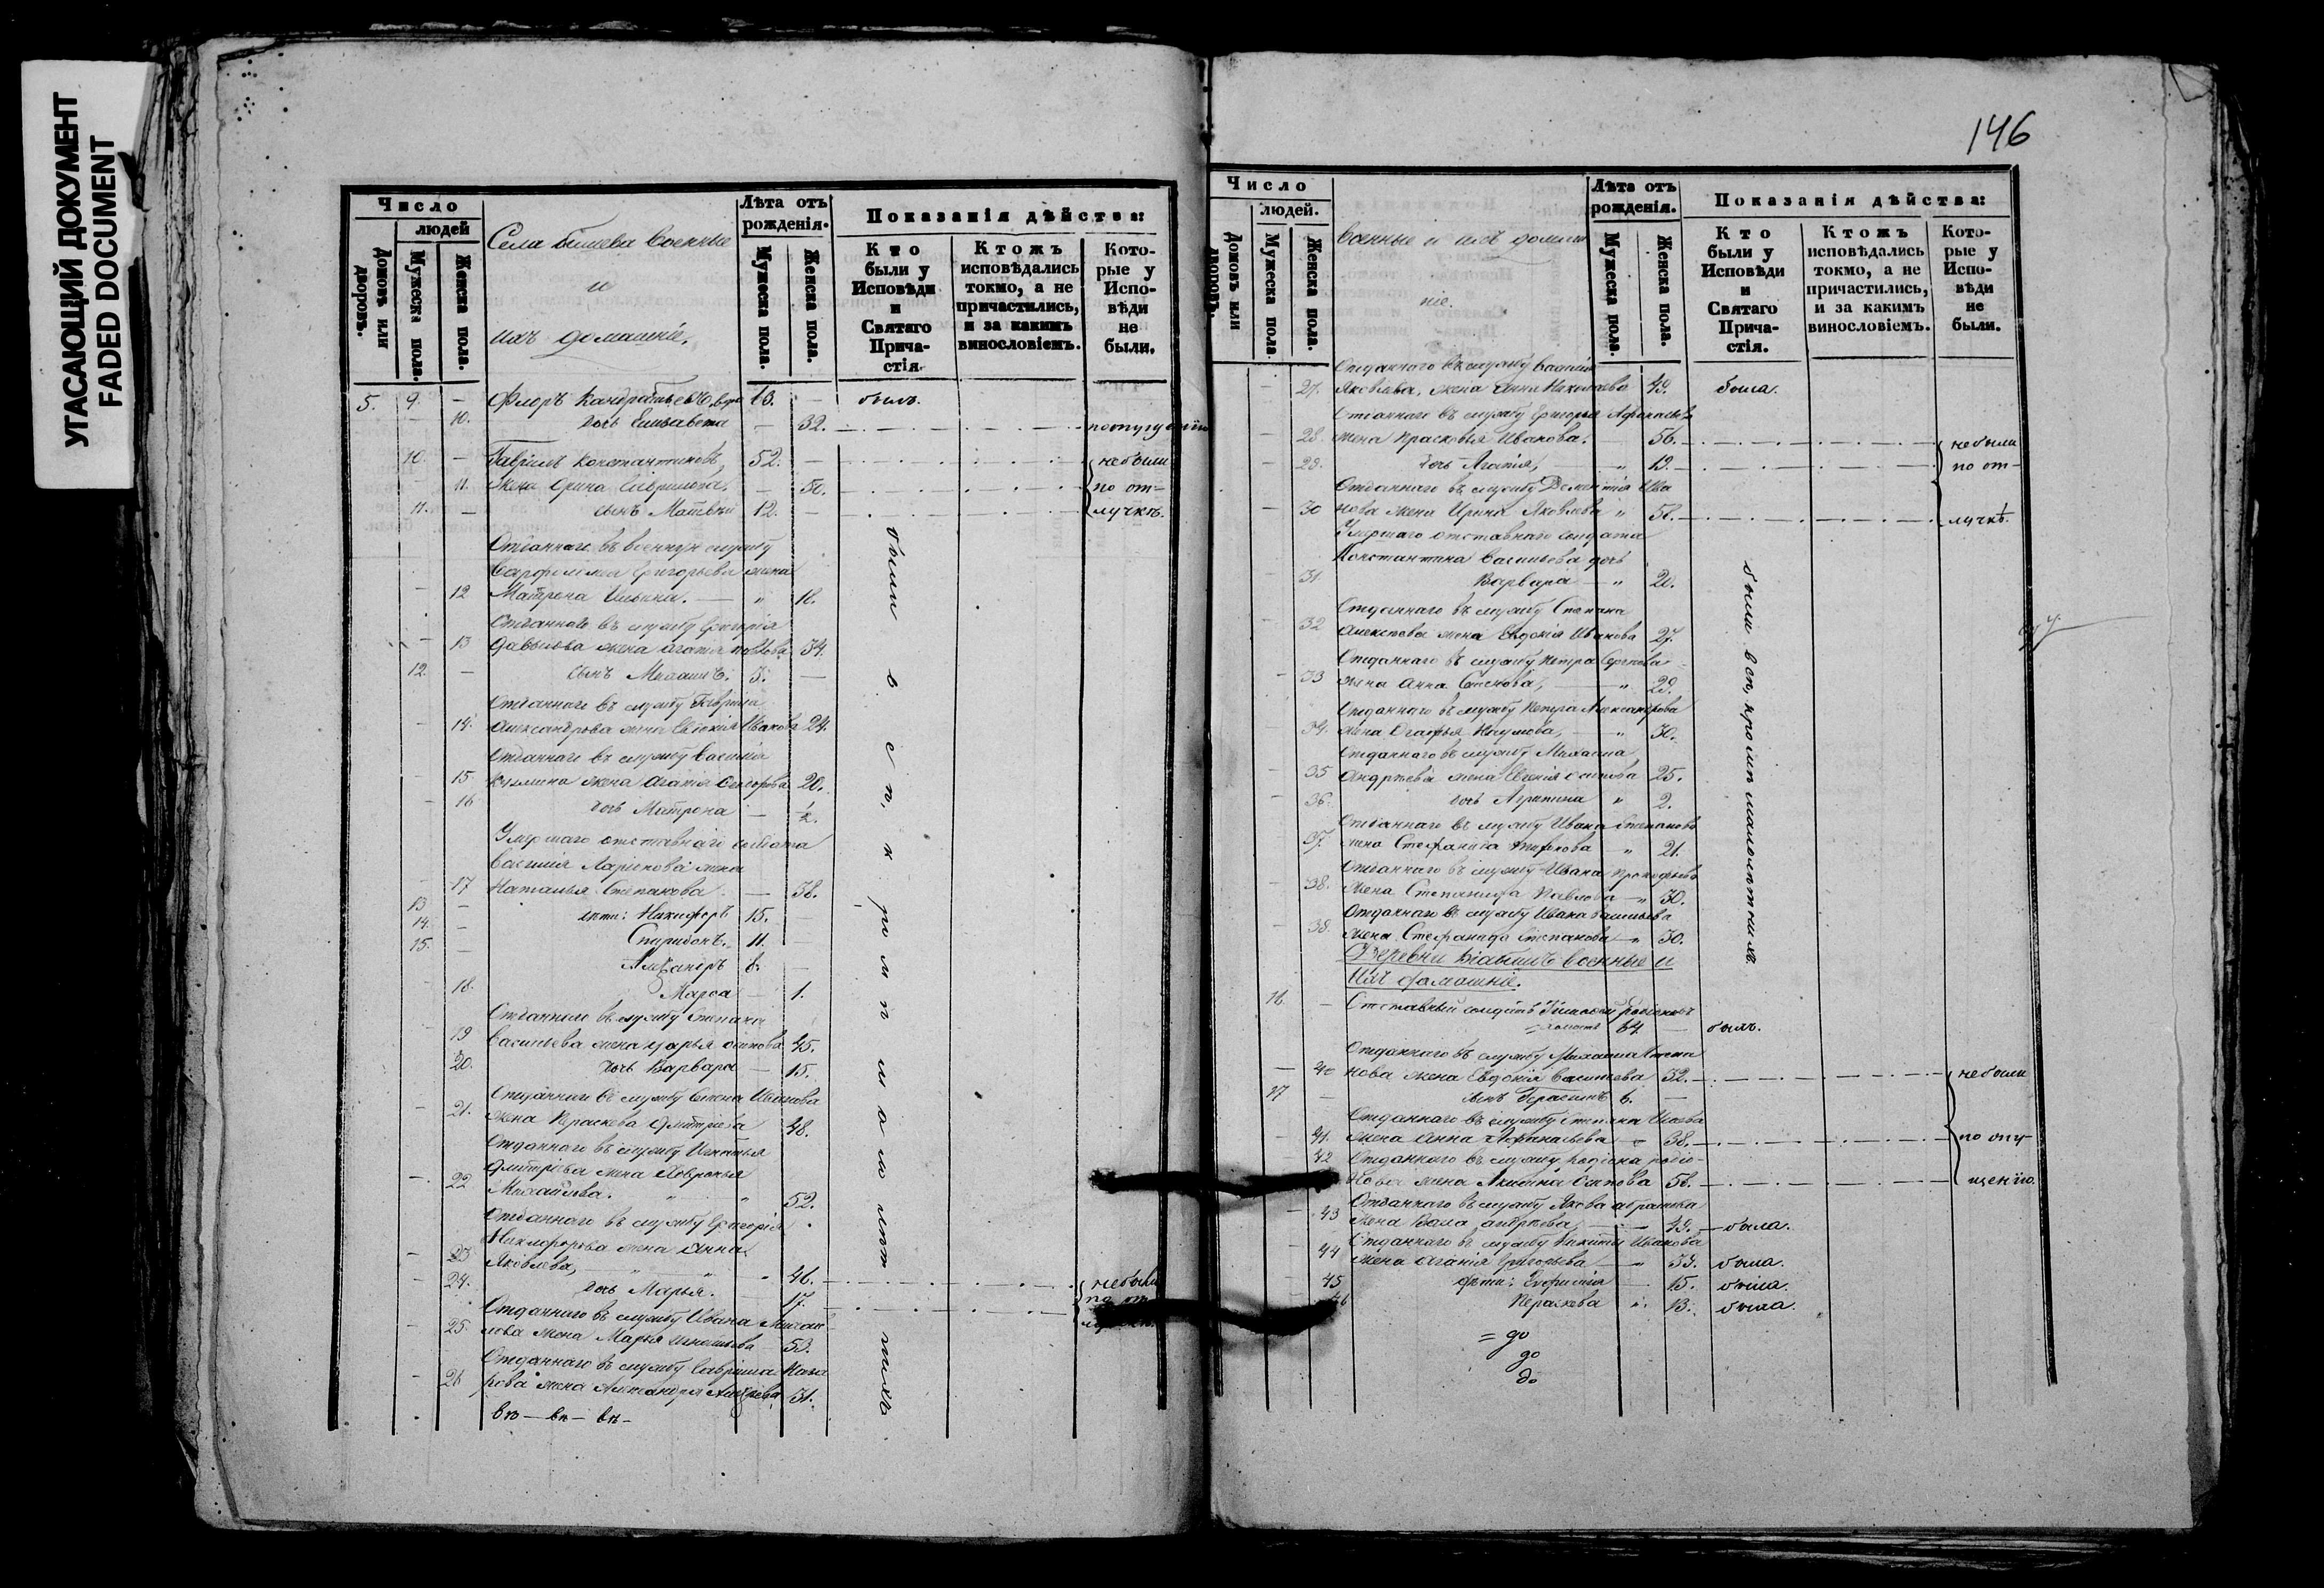 УГАСАЮЩИЙ ДОКУМЕНТ
FADED DOCUMENT
Число
людей
Домовъ или дворовъ.
Мужеска пола.
Женска пола.
Села Военные
и
ихъ домашніе,
Лѣта отъ рожденія.
Мужеска пола.
Женска пола.
Показанія дѣйства:
Кто были у Исповѣди и Святаго Причастія.
Ктожъ исповѣдались токмо, а не причастились, и за какимъ винословіемъ.
Которые у Исповѣди не были.
5. 9. — Флоръ 63. — былъ.
10. дочь Елисавета — 32.
10. — Гаврилъ Константиновъ, 52. — небыли
11. жена Ирина Гаврилова, — 50. по от-
11. — сынъ Матвѣй 12. — лучкѣ.
Отданнаго въ военную службу
Варфоломея Григорьева жена
12 Матрена Ильина. — „ 18.
Отданнаго въ службу Григорія
13 Давыдова жена Агафья 34.
12. — сынъ Михаилъ. 5. —
Отданнаго въ службу Гавріила
14. Александрова жена Евдокія Иванова 24.
Отданнаго въ службу Василія
15. Кузмина жена Агафія 20.
16 дочь Матрона — ½.
Умершаго отставнаго солдата
Василія Ларіонова жена
17 Наталья Степанова — 38.
13 — дѣти: Никифоръ 15. —
14. — Спиридонъ. 11. —
15. — Александръ 8. —
18. Марѳа — 1.
Отданнаго въ службу Степана
19 Васильева жена Дарья Осипова 45.
20. дочь Варвара — 15.
Отданнаго въ службу Семена Иванова
21. жена Параскева Дмитріева 48.
Отданнаго въ службу Игнатья
Дмитріева жена Ховронья
22 Михайлова. „ „ 52.
Отданнаго въ службу Григорія
Никифорова жена Анна
23 Яковлева, „ „ „ 46. небыли
24. дочь Марья. — 17. по от-
Отданнаго въ службу Ивана Михай-
25. лова жена Марья Игнатьева 53.
Отданнаго въ службу Гавріила
26 жена Александра Андреева 31.
вѣ — вѣ — вѣ —
были всѣ, кромѣ малолѣтнихъ
146
Число
людей.
Домовъ или дворовъ.
Мужеска пола.
Женска пола.
Военные и ихъ домаш
ніе.
Лѣта отъ рожденія.
Мужеска пола.
Женска пола.
Показанія дѣйства:
Кто были у Исповѣди и Святаго Причастія.
Ктожъ исповѣдались токмо, а не причастились, и за какимъ винословіемъ.
Которые у Исповѣди не были.
Отданнаго въ службу Василія
27. Яковлева, жена Анна Николаева 49. была.
Отданнаго въ службу Григорья Афанасьева
28. жена Прасковья Иванова. 56. небыли
29. дочь Агафія, „ 19. по от-
Отданнаго въ службу Дементія Ива
30 нова жена Ирина Яковлева „ 58. лучкѣ.
Умершаго отставнаго солдата
Константина Васильева дочь
31. Варвара — „ 20.
Отданнаго въ службу Степана
32 Алексѣева жена Евдокія Иванова 27.
Отданнаго въ службу Петра Сергѣева
33 жена Анна Семенова, „ 29.
Отданнаго въ службу Петра Александрова
34. жена Агафья Наумова, „ 30.
Отданнаго въ службу Михаила
35 Андрѣева жена Евгенія Осипова 25.
36. дочь Агрипина „ 2.
Отданнаго въ службу Ивана Степанова
37. жена Стефанида „ 21.
Отданнаго въ службу Ивана Прокофьева
38. жена Степанида Павлова — „ 30.
Отданнаго въ службу Ивана Васильева
39. жена Стефанида Степанова — „ 30.
были всѣ, кромѣ малолѣтнихъ.
Деревни военные и
ихъ домашніе.
16. — Отставный солдатъ Тимофей Родіоновъ
холостъ 64 — былъ.
Отданнаго въ службу Михаила Степа
40 нова жена Евдокія Васильева 32. небыли
17 — сынъ Герасимъ 6. —
Отданнаго въ службу Степана Исаева
41. жена Анна Афанасьева „ 38. по опу-
42 Отданнаго въ службу Родіона Родіо-
нова жена Акилина Осипова 58. щенію.
Отданнаго въ службу Якова Абрамова
43 жена Васса Андреева — 49. — была.
Отданнаго въ службу Никиты Иванова
44 жена Агафія Григорьева „ 53. была.
45 дѣти: Евфимія 15. была.
46 Параскева „ 13. была.
= до
до
до